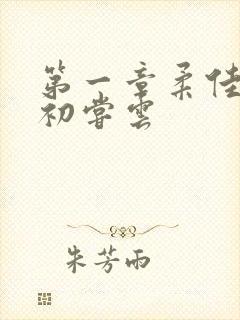 第一章柔佳
初尝雲
朱芳雨